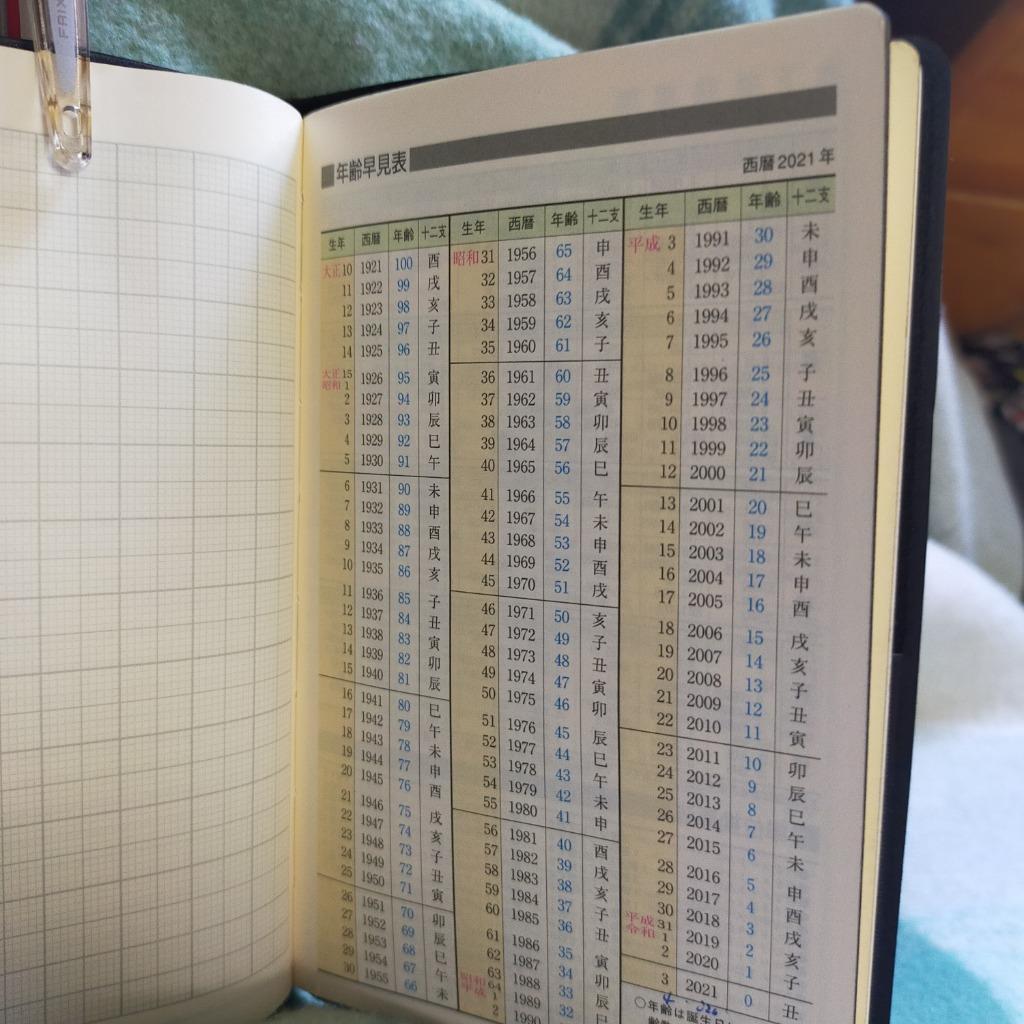 年齢早見表
西暦2021年
生年 西暦 年齢 十二支
大正10 1921 100 酉
11 1922 99 戌
12 1923 98 亥
13 1924 97 子
14 1925 96 丑
大正15
昭和1 1926 95 寅
2 1927 94 卯
3 1928 93 辰
4 1929 92 巳
5 1930 91 午
6 1931 90 未
7 1932 89 申
8 1933 88 酉
9 1934 87 戌
10 1935 86 亥
11 1936 85 子
12 1937 84 丑
13 1938 83 寅
14 1939 82 卯
15 1940 81 辰
16 1941 80 巳
17 1942 79 午
18 1943 78 未
19 1944 77 申
20 1945 76 酉
21 1946 75 戌
22 1947 74 亥
23 1948 73 子
24 1949 72 丑
25 1950 71 寅
26 1951 70 卯
27 1952 69 辰
28 1953 68 巳
29 1954 67 午
30 1955 66 未
生年 西暦 年齢 十二支
昭和31 1956 65 申
32 1957 64 酉
33 1958 63 戌
34 1959 62 亥
35 1960 61 子
36 1961 60 丑
37 1962 59 寅
38 1963 58 卯
39 1964 57 辰
40 1965 56 巳
41 1966 55 午
42 1967 54 未
43 1968 53 申
44 1969 52 酉
45 1970 51 戌
46 1971 50 亥
47 1972 49 子
48 1973 48 丑
49 1974 47 寅
50 1975 46 卯
51 1976 45 辰
52 1977 44 巳
53 1978 43 午
54 1979 42 未
55 1980 41 申
56 1981 40 酉
57 1982 39 戌
58 1983 38 亥
59 1984 37 子
60 1985 36 丑
61 1986 35 寅
62 1987 34 卯
63 1988 33 辰
昭和64
平成1 1989 32 巳
2 1990
生年 西暦 年齢 十二支
平成3 1991 30 未
4 1992 29 申
5 1993 28 酉
6 1994 27 戌
7 1995 26 亥
8 1996 25 子
9 1997 24 丑
10 1998 23 寅
11 1999 22 卯
12 2000 21 辰
13 2001 20 巳
14 2002 19 午
15 2003 18 未
16 2004 17 申
17 2005 16 酉
18 2006 15 戌
19 2007 14 亥
20 2008 13 子
21 2009 12 丑
22 2010 11 寅
23 2011 10 卯
24 2012 9 辰
25 2013 8 巳
26 2014 7 午
27 2015 6 未
28 2016 5 申
29 2017 4 酉
30 2018 3 戌
平成31
令和1 2019 2 亥
2 2020 1 子
3 2021 0 丑
○年齢は誕生日